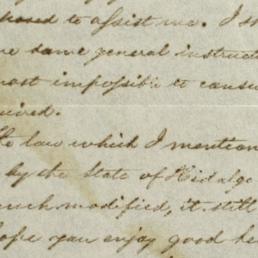 posed to assist me. I s
re same general instruct
most impossible to consu
uired.
the law which I mention
by the State of Hidalgo
much modified, it still
hope you enjoy good he